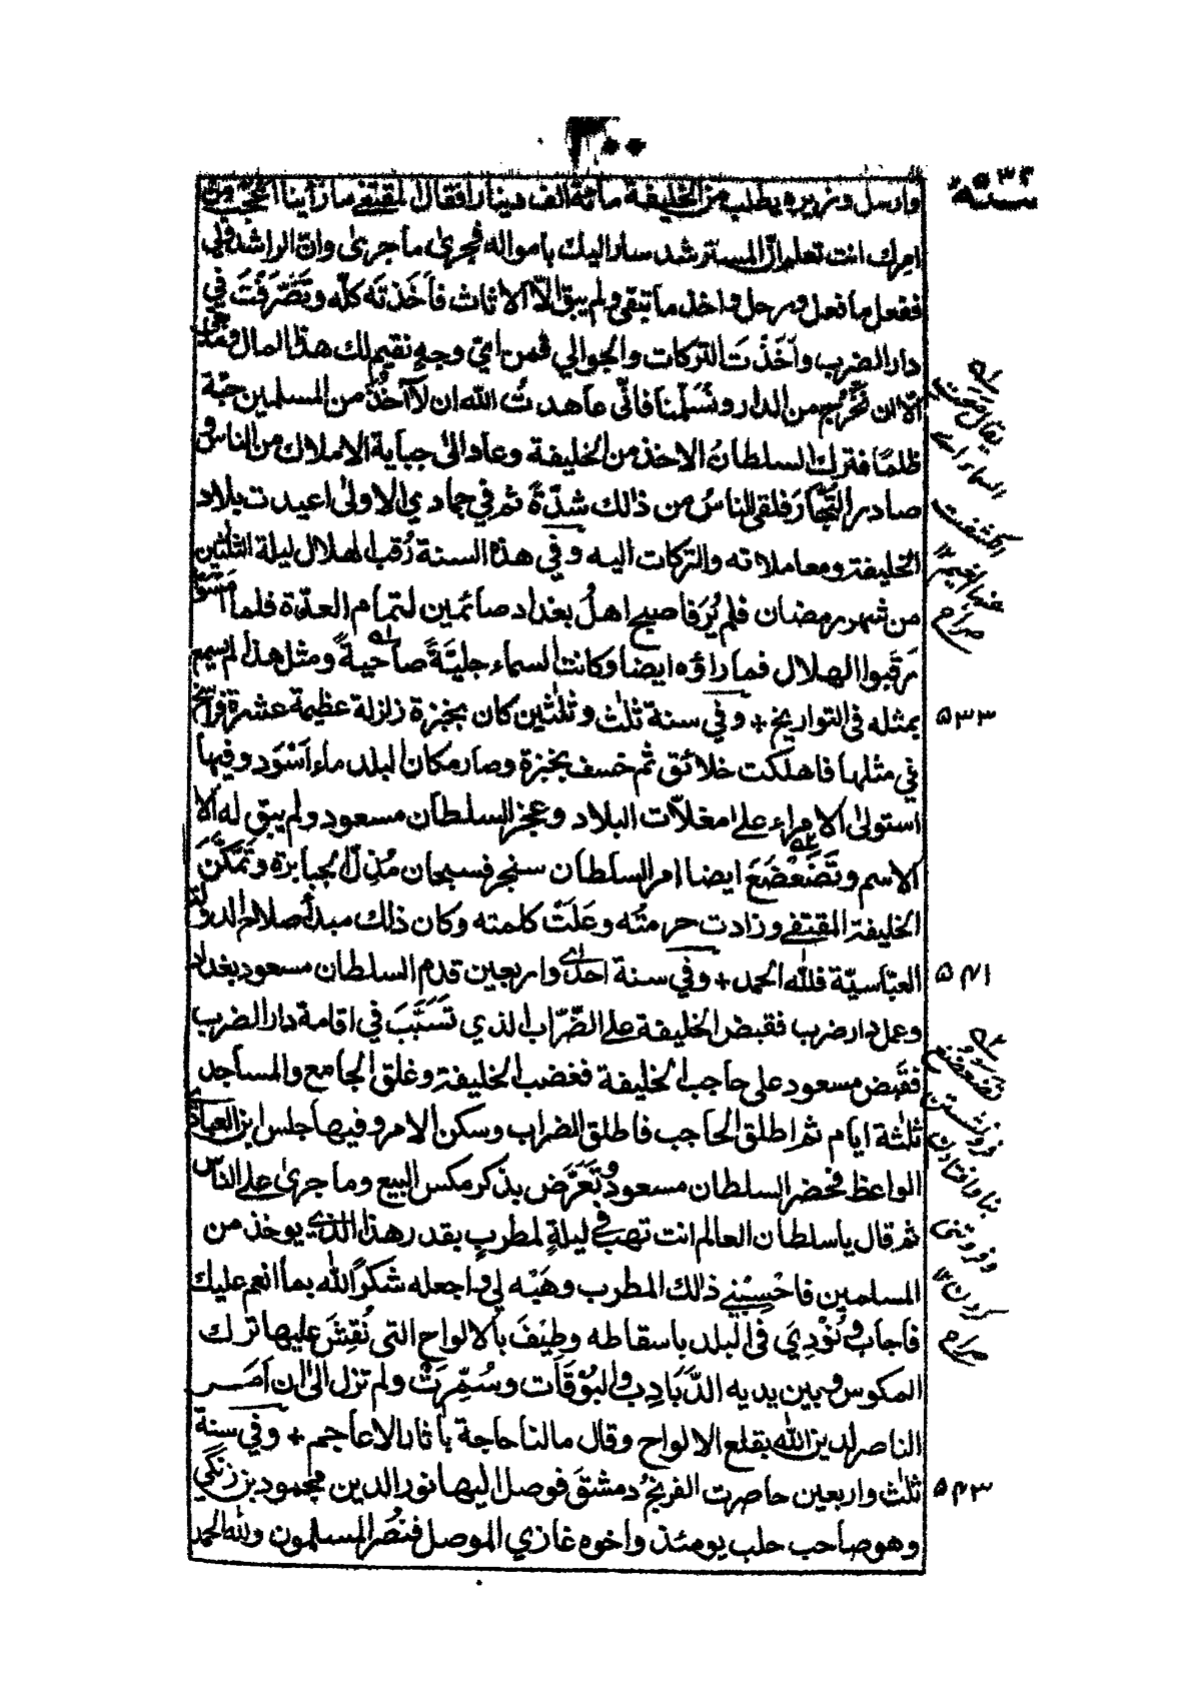 ٣٠٠
سنة ٥٣٢
وارسل وزيره يطلب من الخليفة مائة الف دينار فقال المقتفي ما رأينا اعجب من
امرك انت تعلم ان المسترشد سار اليك بامواله فجرىٰ ما جرىٰ وان الراشد ولي
ففعل ما فعل ورحل واخذ ما تبقى ولم يبق الّا الاثاث فأخذته كلّه وتصرّفت في
دار الضرب وأخذت التركات والجوالي فمن ايّ وجهٍ نقيم لك هذا المال وما بقي
الّا ان نخرج من الدار ونسلّمنا فانّي عاهدتُ الله ان لا آخُذَ من المسلمين حبّة
ظلمًا فترك السلطانُ الاخذ من الخليفة وعاد الىٰ جباية الاملاك من الناس و
صادر التجّارَ فلقي الناسُ من ذالك شدّةً ثم في جمادي الاولىٰ اعيدت بلاد
الخليفة ومعاملاته والتركات اليه وفي هذه السنة رُقب الهلال ليلة الثلٰثين
من شهر رمضان فلم يُرَ فاصبح اهلُ بغداد صائمين لتمام العدّة فلما امسوا
رقبوا الهلال فما راؤه ايضا وكانت السماء جليّةً صاحيةً ومثل هذا لم يسمع
بمثله في التواريخ + وفي سنة ثلٰث وثلٰثين كان بخبزة زلزلة عظيمة عشرة فراسخ
٥٣٣
في مثلها فاهلكت خلائق ثم خسف بخبزة وصار مكان البلد ماء اَسْوَد وفيها
استولىٰ الامراء علىٰ مغلّات البلاد وعجز السلطان مسعود ولم يبق له الا
الاسم وتَضَعْضَعَ ايضا امر السلطان سنجر فسبحان مُذِلّ الجبابرة وتمكّن
الخليفة المقتفي وزادت حرمتُه وعَلَتْ كلمته وكان ذلك مبدأ صلاح الدولة
العبّاسيّة فللّٰه الحمد + وفي سنة احدىٰ واربعين قدم السلطان مسعود بغداد
٥٤١
وعمل دار ضرب فقبض الخليفة على الضّرّاب الذي تَسَبَّبَ في اقامة دار الضرب
فقبض مسعود على حاجب الخليفة فغضب الخليفة وغلق الجامع والمساجد
ثلٰثة ايام ثم اطلق الحاجب فاطلق الضراب وسكن الامر وفيها جلس ابن العبادي
الواعظ فحضر السلطان مسعود وتَعَرَّض بذكر مكس البيع وما جرىٰ على الناس
ثم قال يا سلطان العالم انت تهب في ليلةٍ لمطربٍ بقدر هذا الذي يوخذ من
المسلمين فاحسِبْني ذالك المطرب وهَبْه لي واجعله شكرًا للّٰه بما انعم عليك
فاجاب ونُوْدِيَ في البلد باسقاطه وطِيْفَ بالالواح التي نُقِشَ عليها ترك
المكوس وبين يديه الدَّبَادِب والبُوْقَات وسُمِّرَتْ ولم تزل الىٰ ان اَمَرَ
الناصر لدين اللّٰه بقلع الالواح وقال مالنا حاجة بآثار الاعاجم + وفي سنة
ثلٰث واربعين حاصرت الفرنجُ دمشقَ فوصل اليها نور الدين محمود بن زنگي
٥٤٣
وهو صاحب حلب يومئذ واخوه غازي الموصل فنُصر المسلمون وللّٰه الحمد